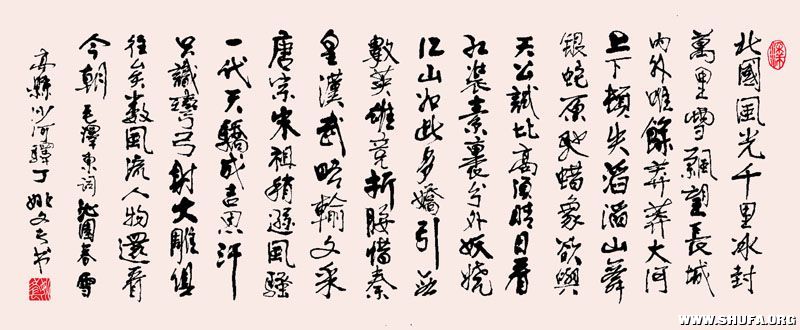 北國風光千里冰封
萬里雪飄望長城
內外唯餘莽莽大河
上下頓失滔滔山舞
銀蛇原馳蜡象欲與
天公試比高須晴日看
紅裝素裹分外妖嬈
江山如此多嬌引无
數英雄竞折腰惜秦
皇漢武略輸文采
唐宗宋祖稍遜風騷
一代天驕成吉思汗
只識彎弓射大雕俱
往矣数風流人物還看
今朝 毛澤東詞沁園春雪
縣沙河驛丁姚文书
WWW.SHUFA.ORG